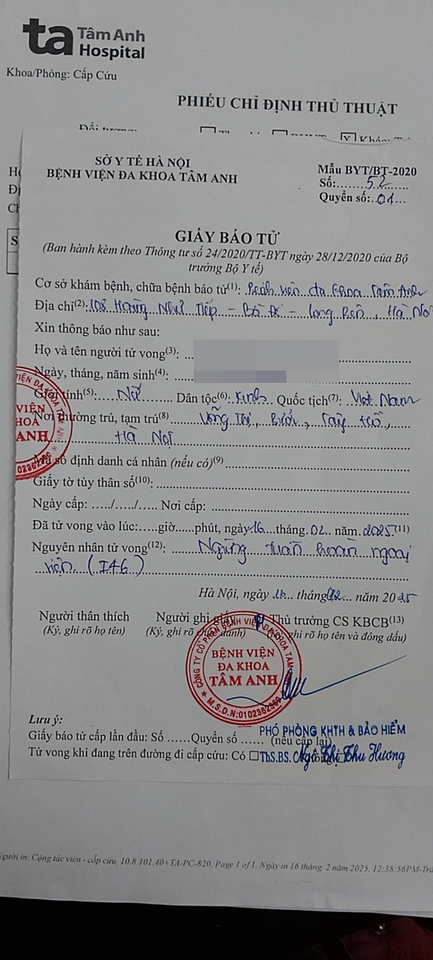 ta Tâm Anh
Hospital
Khoa/Phòng: Cấp Cứu
PHIẾU CHỈ ĐỊNH THỦ THUẬT
SỞ Y TẾ HÀ NỘI
BỆNH VIỆN ĐA KHOA TÂM ANH
Mẫu BYT/BT-2020
Số:.......52
Quyển số:..01....
GIẤY BÁO TỬ
(Ban hành kèm theo Thông tư số 24/2020/TT-BYT ngày 28/12/2020 của Bộ
trưởng Bộ Y tế)
Cơ sở khám bệnh, chữa bệnh báo tử(1): Bệnh viện đa khoa Tâm Anh
Địa chỉ(2): 108 Hoàng Như Tiếp - Bồ Đề - Long Biên, Hà Nội
Xin thông báo như sau:
Họ và tên người tử vong(3):
Ngày, tháng, năm sinh(4):
Giới tính(5): Nữ Dân tộc(6): Kinh Quốc tịch(7): Việt Nam
Nơi thường trú, tạm trú(8) Võng Thị, Bưởi, Tây Hồ,
Hà Nội
Mã số định danh cá nhân (nếu có)(9)
Giấy tờ tùy thân số(10):
Ngày cấp: ..../..../.... Nơi cấp:
Đã tử vong vào lúc:.....giờ.....phút, ngày 16 tháng. 02 năm 2025(11)
Nguyên nhân tử vong(12): Ngừng tuần hoàn ngoại
viện (I46)
Hà Nội, ngày 16 tháng 02 năm 2025
Người thân thích Người ghi giấy Thủ trưởng CS KBCB(13)
(Ký, ghi rõ họ tên) (Ký, ghi rõ chức danh) (Ký, ghi rõ họ tên và đóng dấu)
CÔNG TY CỔ PHẦN BỆNH VIỆN ĐA KHOA TÂM ANH
BỆNH VIỆN
ĐA KHOA
TÂM ANH
M.S.D.N:0102362369
Lưu ý:
PHÓ PHÒNG KHTH & BẢO HIỂM
Giấy báo tử cấp lần đầu: Số ......Quyển số ...... (nếu cấp lại)
Tử vong khi đang trên đường đi cấp cứu: Có □ Không □
ThS.BS. Ngô Thị Thu Hương
Người in: Cộng tác viên - cấp cứu, 10.8.101.40+TA-PC-820, Page 1 of 1, Ngày in 16 tháng 2 năm 2025, 12:38:56PM